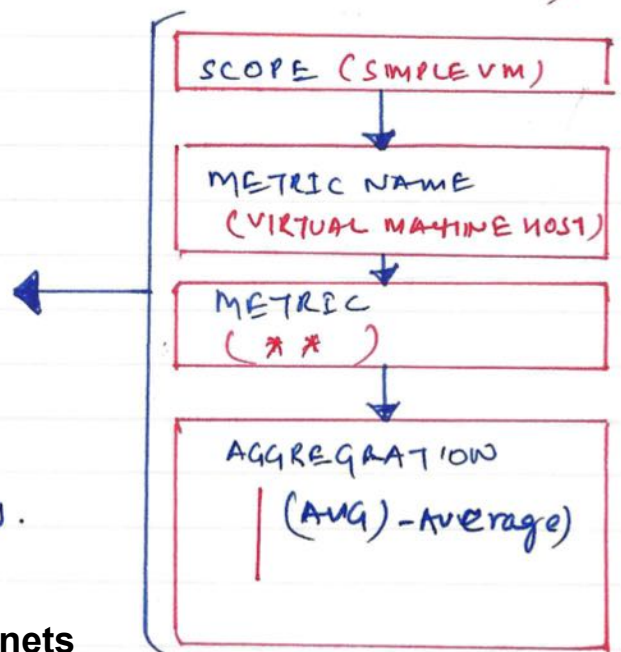 SCOPE (SIMPLE VM)
METRIC NAME
(VIRTUAL MACHINE HOST)
METRIC
(**)
AGGREGRATION
(AVG) - Average)
nets